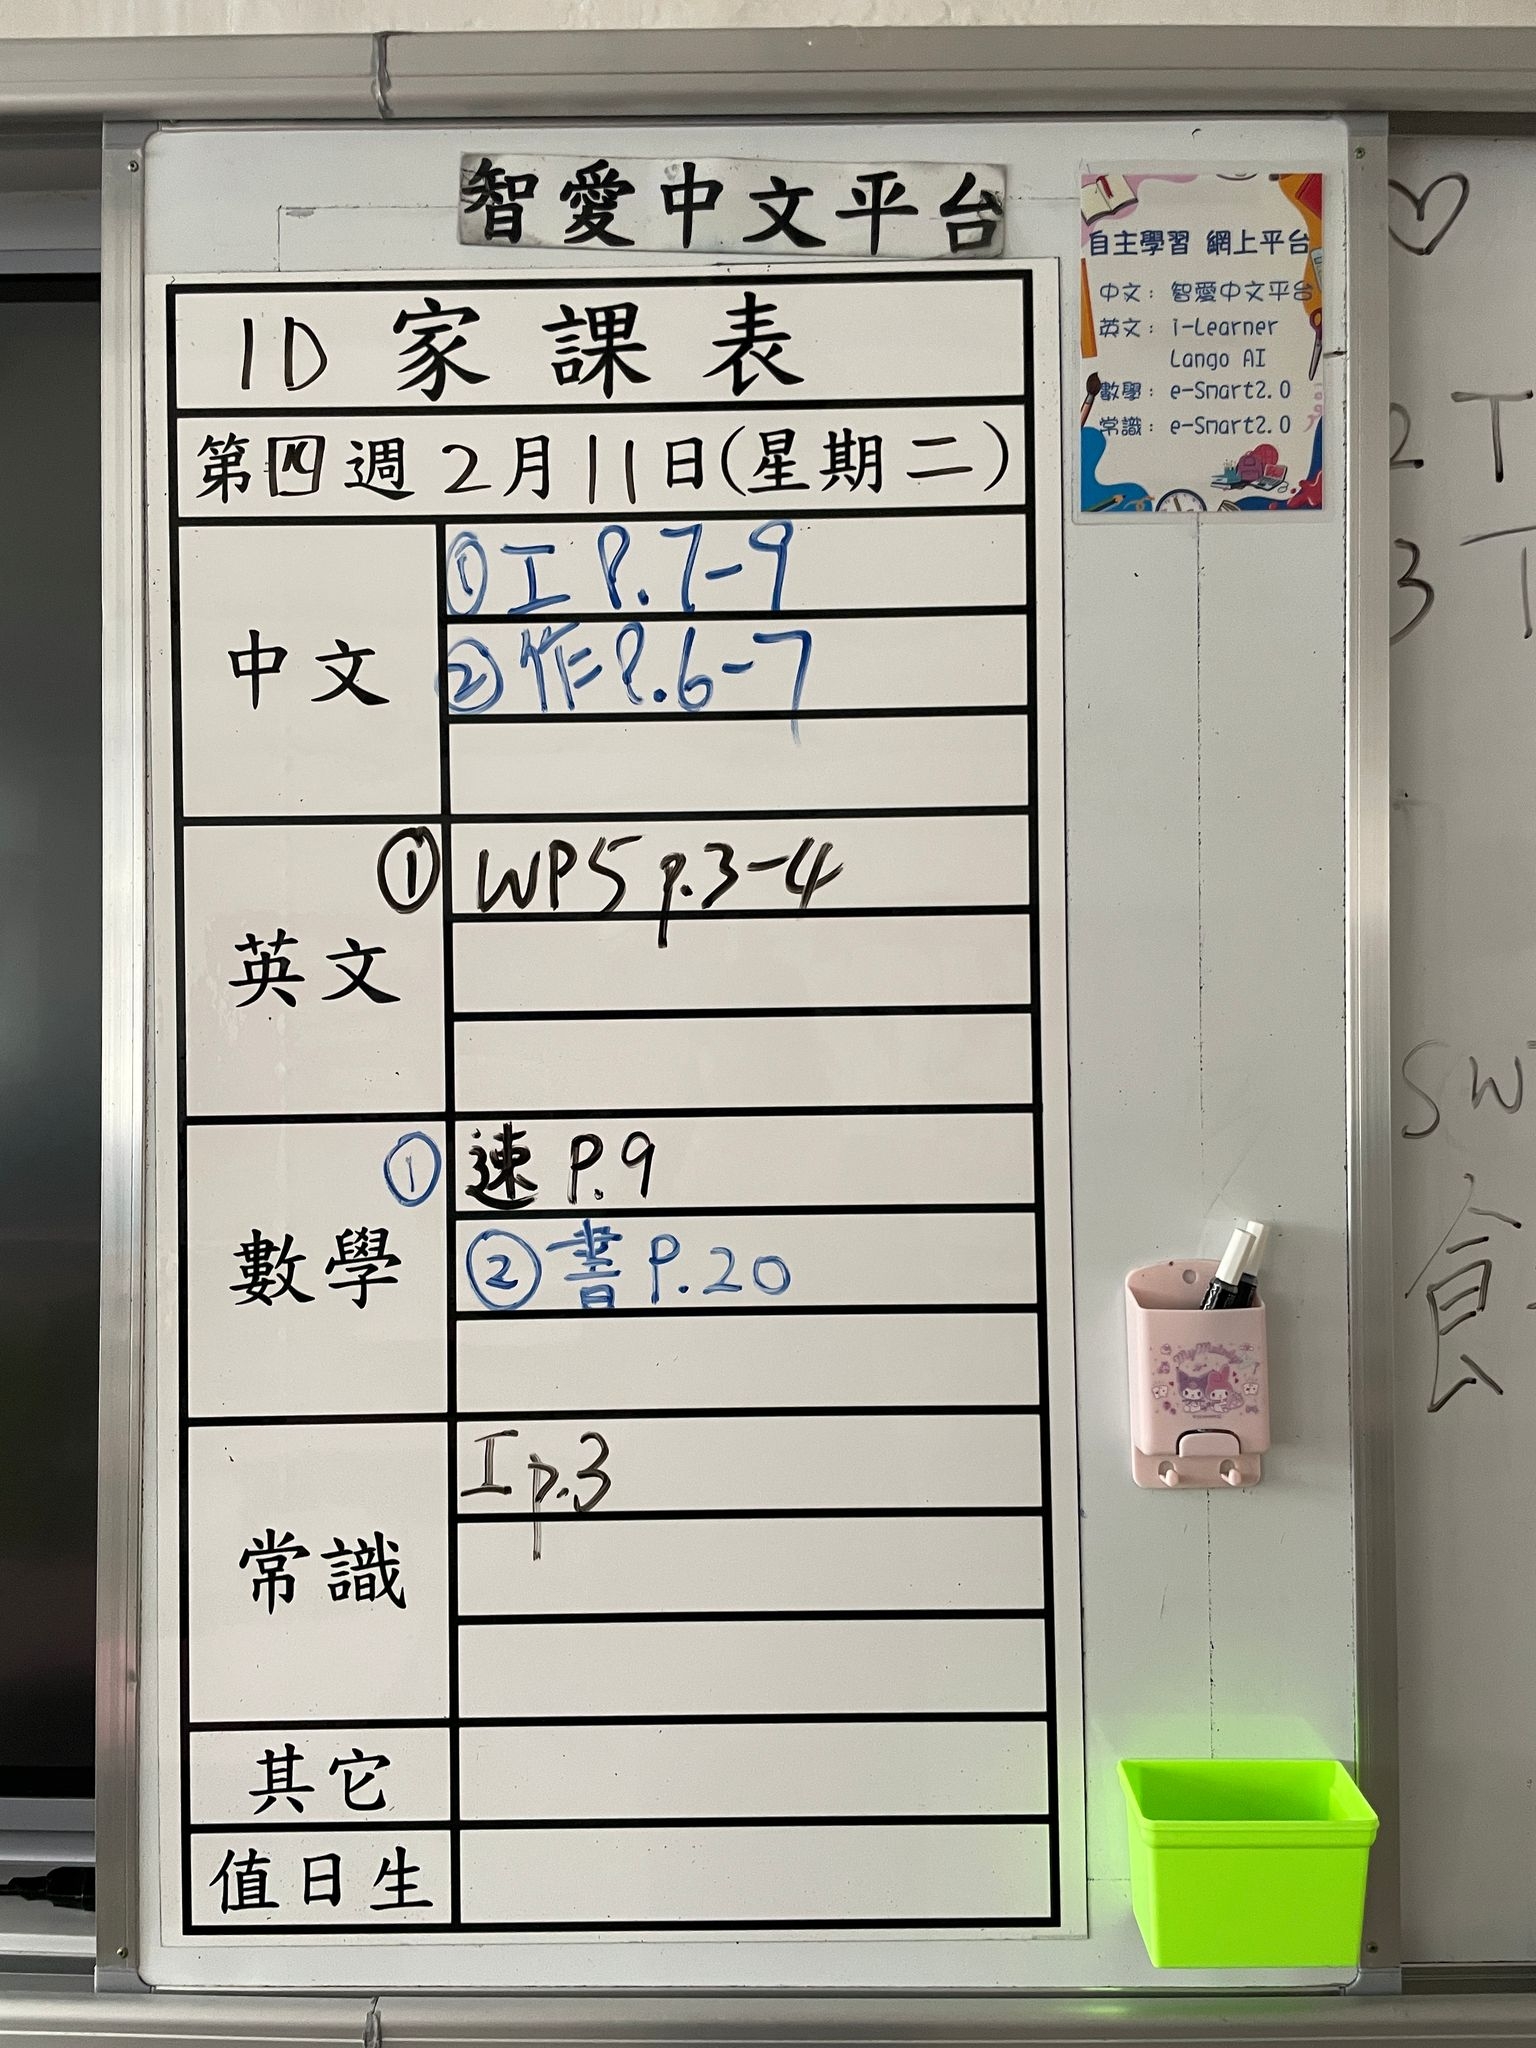 智愛中文平台
自主學習 網上平台
中文：智愛中文平台
英文：i-Learner
Lango AI
數學：e-Smart2.0
常識：e-Smart2.0
1D 家課表
第四週2月11日(星期二)
中文
①工 P.7-9
②作 P.6-7
英文
① WP5 p.3-4
數學
① 速 P.9
② 書 P.20
常識
工 p.3
其它
值日生
My Melody
2 T
3 T
SW
食